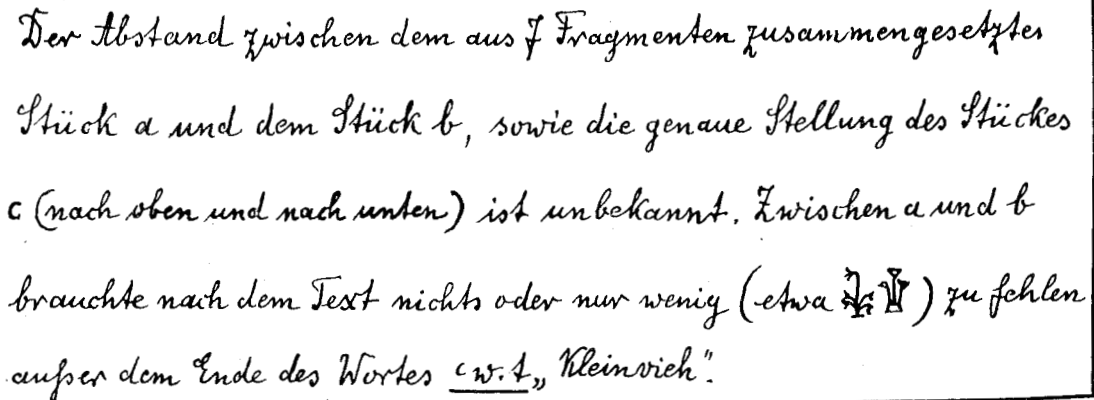 Der Abstand zwischen dem aus 7 Fragmenten zusammengesetzten
Stück a und dem Stück b, sowie die genaue Stellung des Stückes
c (nach oben und nach unten) ist unbekannt. Zwischen a und b
brauchte nach dem Text nichts oder nur wenig (etwa ) zu fehlen
außer dem Ende des Wortes ꜥw.t „Kleinvieh“.